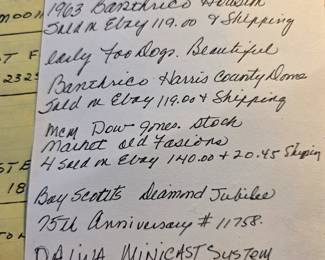 MOON
1963 Banthrico Houston
Sold on Ebay 119.00 & Shipping
ST F
early Foo Dogs. Beautiful
2325
Banthrico Harris County Dome
Sold on Ebay 119.00 + Shipping
mcm Dow Jones Stock
Market old Fasions
4 Sold on Ebay 140.00 + 20.45 Shipping
ST E
18
Boy Scotts Diamond Jubilee
75th Anniversary # 11758.
DAIWA MINICAST SYSTEM